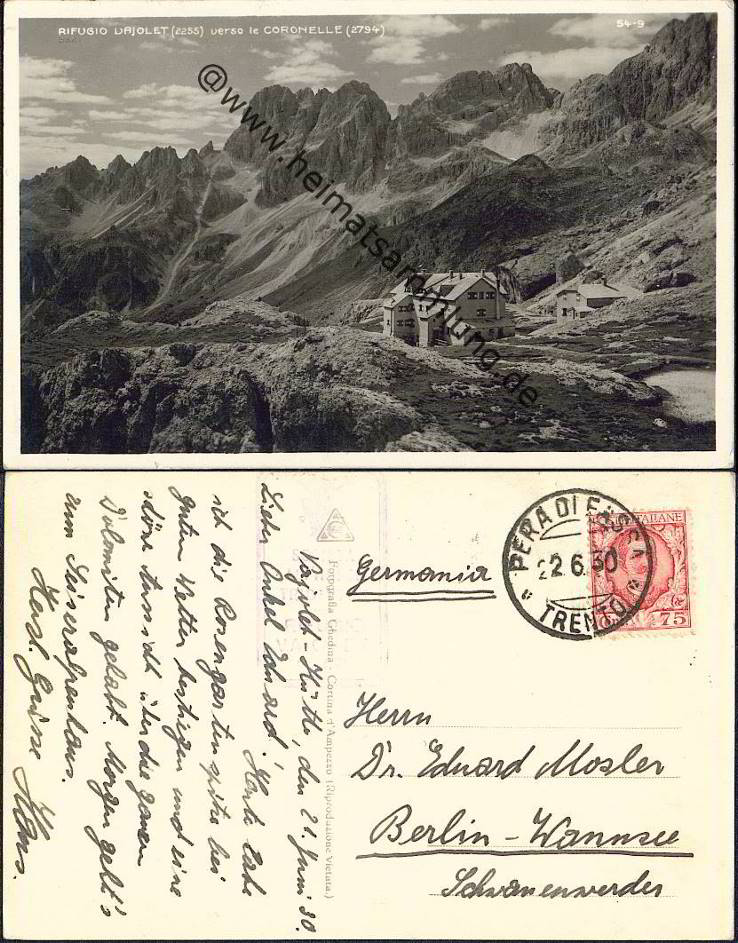 RIFUGIO VAJOLET (2255) verso le CORONELLE (2794)
54-9
@www.heimatsammlung.de
Vajolet-Hütte, den 21. Juni 30.
Lieber Onkel Eduard! Heute habe
ich die Rosengartenspitze bei
guten Wetter bestiegen und eine
schöne Aussicht über die ganzen
Dolomiten gehabt. Morgen geht's
zum Seiseralpenhaus.
Herzl. Grüsse Hans.
Fotografia Ghedina - Cortina d'Ampezzo (Riproduzione Vietata.)
Germania
PERA DI FASSA
22.6.30
TRENTO
ITALIANE
75
Herrn
Dr. Eduard Mosler
Berlin-Wannsee
Schwanenwerder